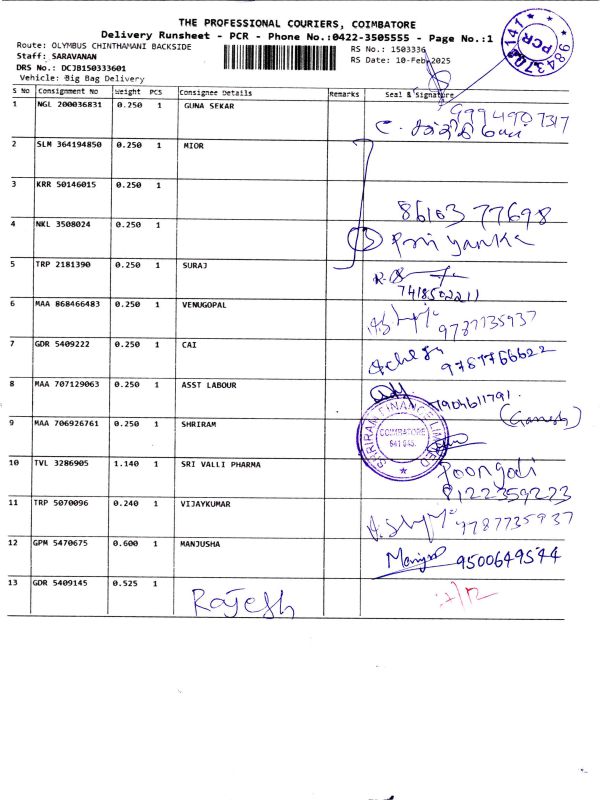 THE PROFESSIONAL COURIERS, COIMBATORE
Delivery Runsheet - PCR - Phone No.:0422-3505555 - Page No.:1
Route: OLYMBUS CHINTHAMANI BACKSIDE
RS No.: 1503336
Staff: SARAVANAN
RS Date: 10-Feb-2025
DRS No.: DCJB150333601
Vehicle: Big Bag Delivery
PCR
S No Consignment No Weight PCS Consignee Details Remarks Seal & Signature
1 NGL 200036831 0.250 1 GUNA SEKAR
9994907317
2 SLM 364194850 0.250 1 MIOR
3 KRR 50146015 0.250 1
86103 77698
4 NKL 3508024 0.250 1
Priyanka
5 TRP 2181390 0.250 1 SURAJ
7418502211
6 MAA 868466483 0.250 1 VENUGOPAL
9787735937
7 GDR 5409222 0.250 1 CAI
9787766622
8 MAA 707129063 0.250 1 ASST LABOUR
7904611791.
(Ganesh)
9 MAA 706926761 0.250 1 SHRIRAM
SHRIRAM FINANCE LIMITED
COIMBATORE
641 045.
10 TVL 3286905 1.140 1 SRI VALLI PHARMA
Poongodi
8122359273
11 TRP 5070096 0.240 1 VIJAYKUMAR
9787735937
12 GPM 5470675 0.600 1 MANJUSHA
9500649544
13 GDR 5409145 0.525 1
Rajesh